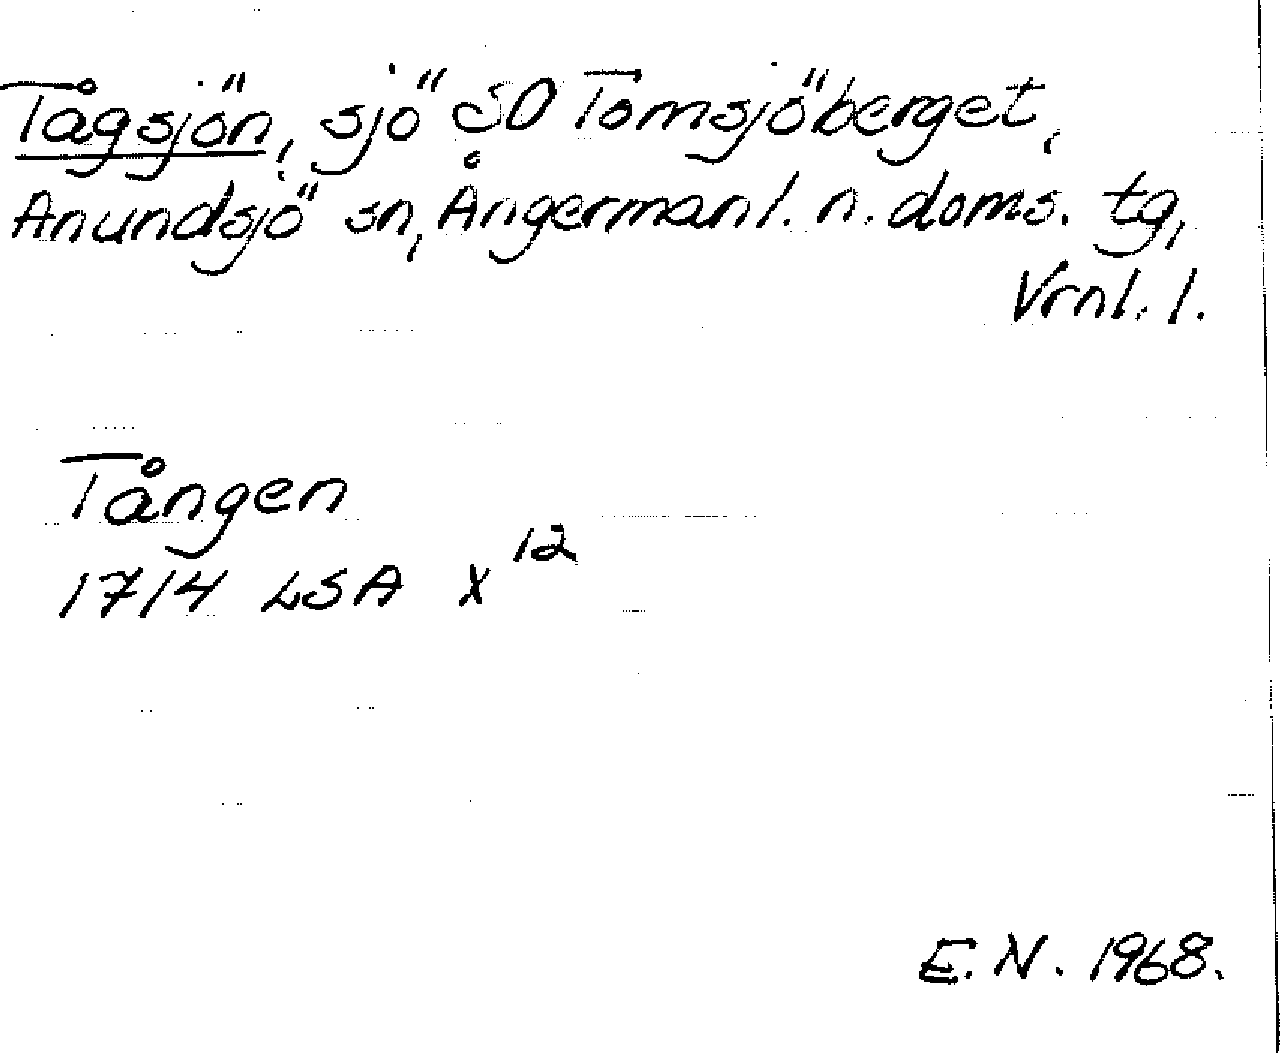 Tågsjön, sjö SO Tomsjöberget,
Anundsjö sn, Ångermanl. n. doms. tg,
Vrnl. l.
Tången
1714 LSA X 12
E. N. 1968.